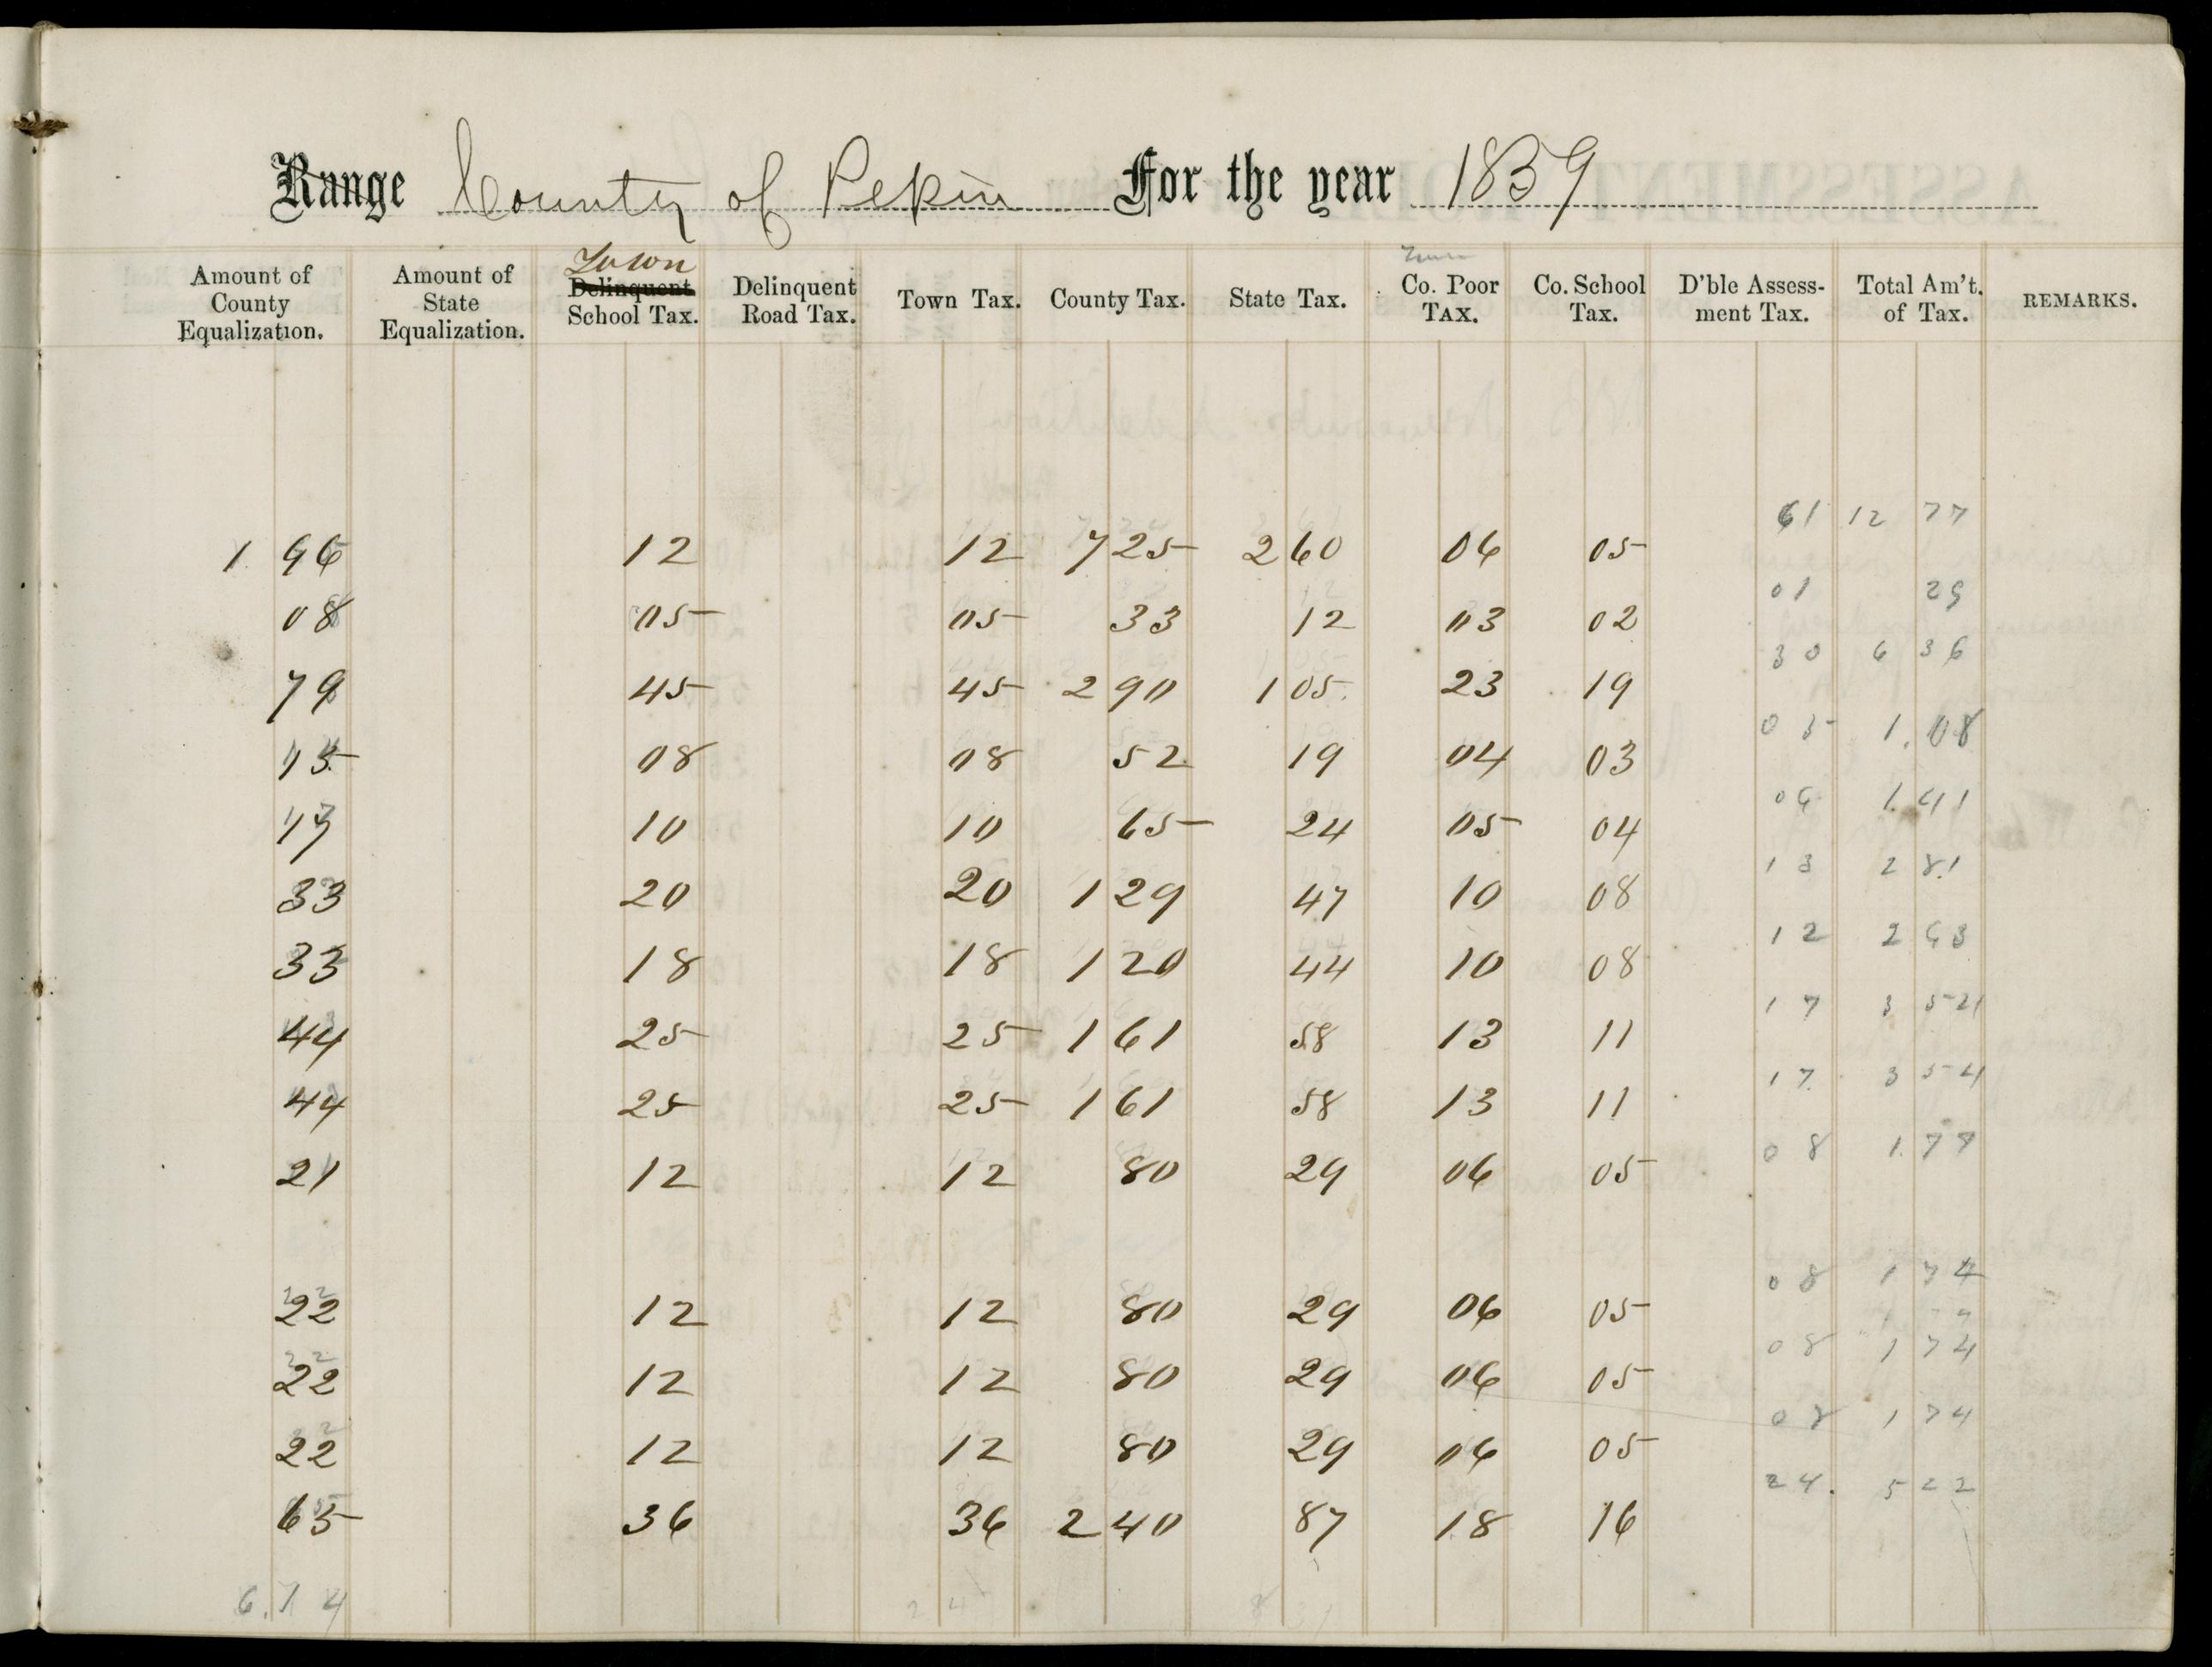 Range County of Pekin For the year 1859
Amount of County Equalization. Amount of State Equalization. Town Delinquent School Tax. Delinquent Road Tax. Town Tax. County Tax. State Tax. Co. Poor Tax. Co. School Tax. D'ble Assessment Tax. Total Am't. of Tax. REMARKS.
61 12 77
1 96 12 12 7 25 2 60 06 05
01 29
08 05 05 33 12 03 02
30 6 36
79 45 45 2 90 1 05 23 19
05 1.08
13 08 08 52 19 04 03
06 1.41
17 10 10 65 24 05 04
13 2 81
33 20 20 1 29 47 10 08
12 2 63
33 18 18 1 20 44 10 08
17 3 54
44 25 25 1 61 58 13 11
17 3 54
44 25 25 1 61 58 13 11
08 1.77
21 12 12 80 29 06 05
08 1 74
22 12 12 80 29 06 05
08 1 74
22 12 12 80 29 06 05
08 1 74
22 12 12 80 29 06 05
24. 5 22
65 36 36 2 40 87 18 16
6.74